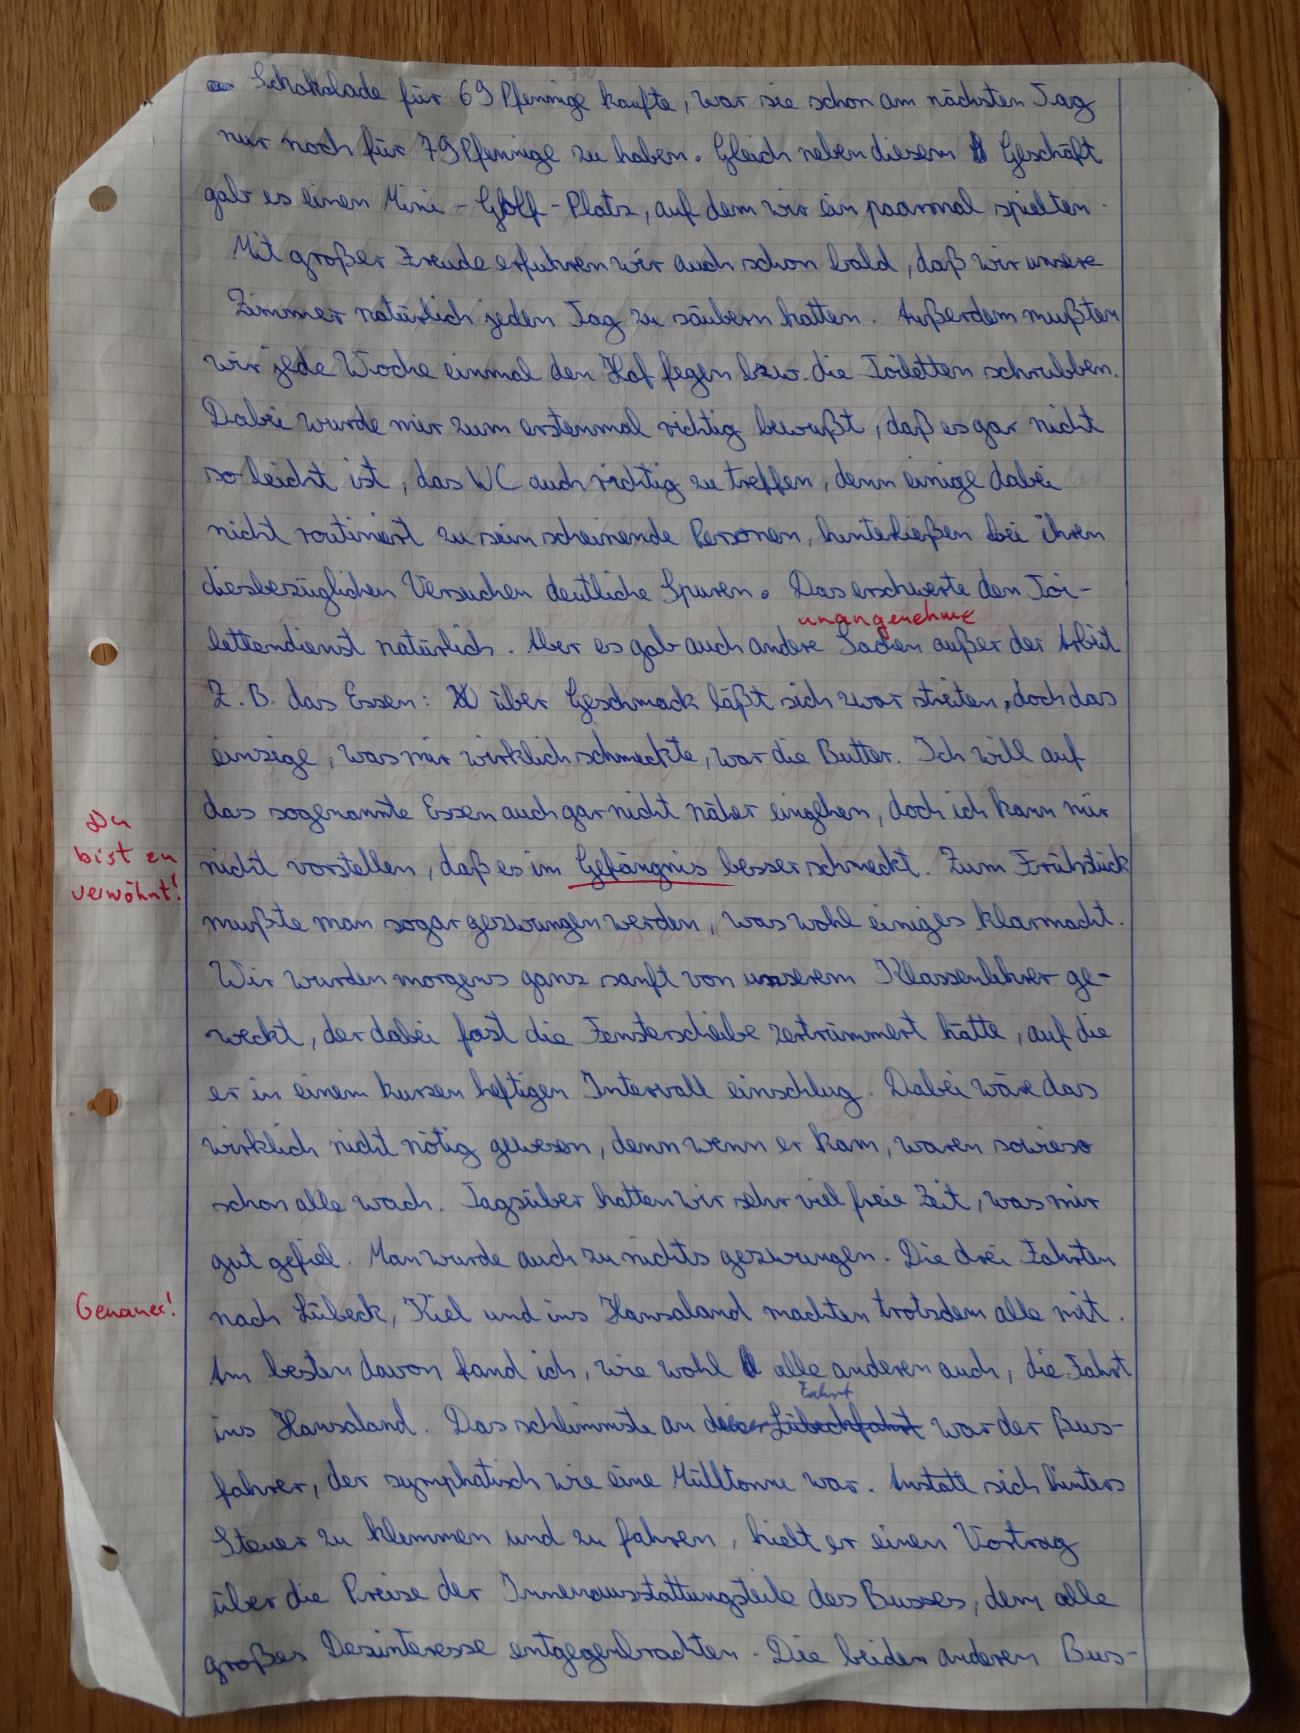 Schokolade für 69 Pfennige kaufte, war sie schon am nächsten Tag
nur noch für 79 Pfennige zu haben. Gleich neben diesem Geschäft
gab es einen Mini-Golf-Platz, auf dem wir ein paarmal spielten.
Mit großer Freude erfuhren wir auch schon bald, daß wir unsere
Zimmer natürlich jeden Tag zu säubern hatten. Außerdem mußten
wir jede Woche einmal den Hof fegen bzw. die Toiletten schrubben.
Dabei wurde mir zum erstenmal richtig bewußt, daß es gar nicht
so leicht ist, das WC auch richtig zu treffen, denn einige dabei
nicht routiniert zu sein scheinende Personen, hinterließen bei ihren
diesbezüglichen Versuchen deutliche Spuren. Das erschwerte den Toi-
unangenehme
lettendienst natürlich. Aber es gab auch andere Sachen außer der Arbeit
Z. B. das Essen: über Geschmack läßt sich zwar streiten, doch das
einzige, was mir wirklich schmeckte, war die Butter. Ich will auf
das sogenannte Essen auch gar nicht näher eingehen, doch ich kann mir
Du
bist zu
verwöhnt!
nicht vorstellen, daß es im Gefängnis besser schmeckt. Zum Frühstück
mußte man sogar gezwungen werden, was wohl einiges klarmacht.
Wir wurden morgens ganz sanft von unserem Klassenlehrer ge-
weckt, der dabei fast die Fensterscheibe zertrümmert hätte, auf die
er in einem kurzen heftigen Intervall einschlug. Dabei wäre das
wirklich nicht nötig gewesen, denn wenn er kam, waren sowieso
schon alle wach. Tagsüber hatten wir sehr viel freie Zeit, was mir
gut gefiel. Man wurde auch zu nichts gezwungen. Die drei Fahrten
Genauer!
nach Lübeck, Kiel und ins Hansaland machten trotzdem alle mit.
Am besten davon fand ich, wie wohl alle anderen auch, die Fahrt
Fahrt
ins Hansaland. Das schlimmste an dieser Lübeckfahrt war der Bus-
fahrer, der symphatisch wie eine Mülltonne war. Anstatt sich hinters
Steuer zu klemmen und zu fahren, hielt er einen Vortrag
über die Preise der Innenausstattungsteile des Busses, dem alle
großes Desinteresse entgegenbrachten. Die beiden anderen Bus-